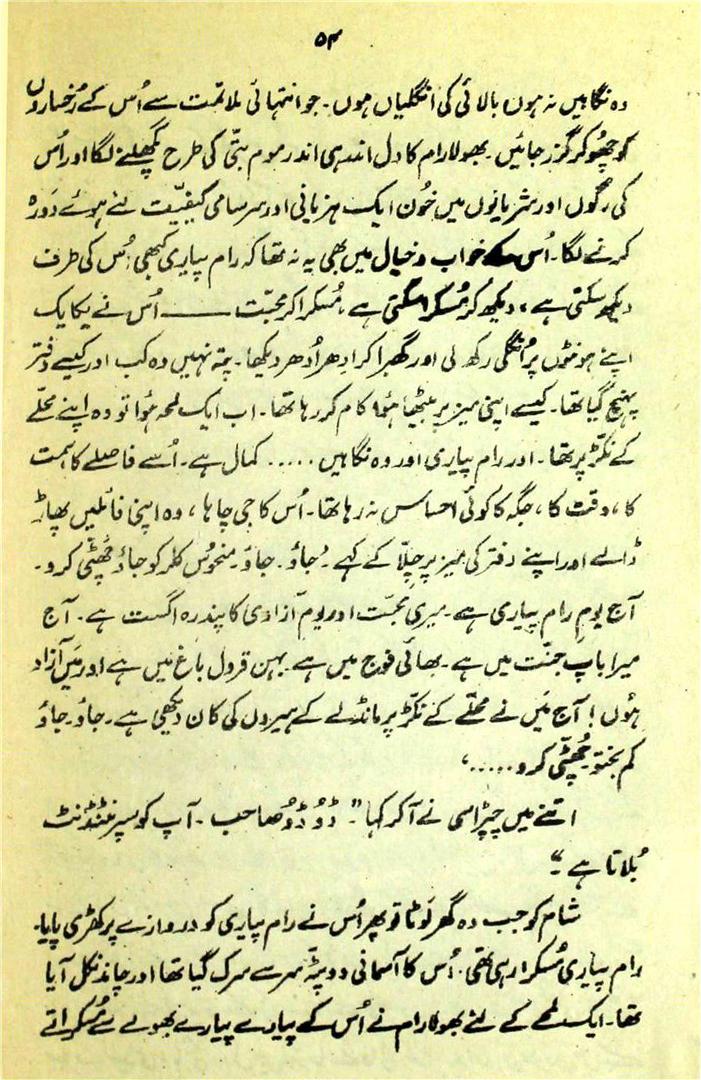 ۵۴
وہ نگاہیں نہ ہوں بالائی کی انگلیاں ہوں۔ جو انتہائی ملائمت سے اُس کے رُخساروں
کو چھُو کر گزر جائیں۔ بھولا رام کا دل اندر ہی اندر موم بتّی کی طرح پگھلنے لگا اور اُس
کی رگوں اور شریانوں میں خُون ایک ہزیانی اور سرسامی کیفیّت لئے ہوئے دَورہ
کرنے لگا۔ اُس کے خواب و خیال میں بھی یہ نہ تھا کہ رام پیاری کبھی اُس کی طرف
دیکھ سکتی ہے، دیکھ کر مُسکرا سکتی ہے، مُسکرا کر محبّت ــــــ اُس نے یکایک
اپنے ہونٹوں پر اُنگلی رکھ لی اور گھبرا کر اِدھر اُدھر دیکھا۔ پتہ نہیں وہ کب اور کیسے دفتر
پہنچ گیا تھا۔ کیسے اپنی میز پر بیٹھا ہُوا کام کر رہا تھا۔ اب ایک لمحہ ہُوا تو وہ اپنے محلّے
کے نکّڑ پر تھا۔ اور رام پیاری اور وہ نگاہیں ..... کمال ہے۔ اُسے فاصلے کا سمت
کا، وقت کا، جگہ کا کوئی احساس نہ رہا تھا۔ اُس کا جی چاہا، وہ اپنی فائلیں پھاڑ
ڈالے اور اپنے دفتر کی میز پر چِلّا کے کہے۔ ‘جاؤ۔ جاؤ۔ منحوُس کلرکو جاؤ چھُٹّی کرو۔
آج یومِ رام پیاری ہے۔ میری محبّت اور یومِ آزادی کا پندرہ اگست ہے۔ آج
میرا باپ جنّت میں ہے۔ بھائی فوج میں ہے۔ بہن قرول باغ میں ہے اور مَیں آزاد
ہوُں! آج مَیں نے محلّے کے نکّڑ پر مانڈلے کے ہیروں کی کان دیکھی ہے۔ جاؤ۔ جاؤ
کم بختو چھُٹّی کرو.....’
اتنے میں چپڑاسی نے آ کر کہا۔" ڈوُڈوُھا صاحب۔ آپ کو سپرنٹنڈنٹ
بُلاتا ہے۔"
شام کو جب وہ گھر لَوٹا تو پھر اُس نے رام پیاری کو دروازے پر کھڑی پایا۔
رام پیاری مُسکرا رہی تھی۔ اُس کا آسمانی دوپٹّہ سر سے سرک گیا تھا اور چاند نکل آیا
تھا۔ ایک لمحے کے لئے بھولا رام نے اُس کے پیارے پیارے بھولے سے مُسکراتے